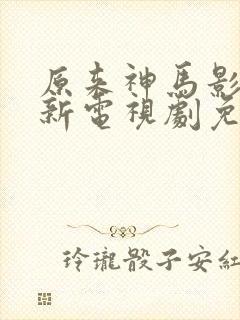 原来神馬影
新電視劇免
玲瓏骰子安紅